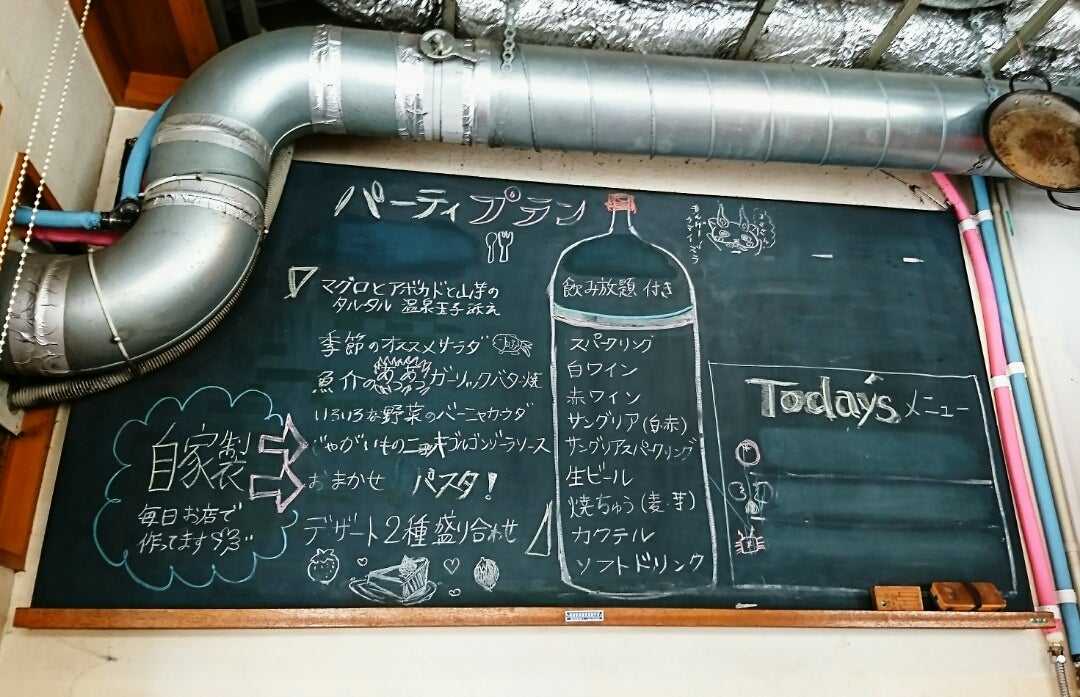 パーティプラン
マグロとアボカドと山芋の
タルタル 温泉玉子添え
季節のオススメサラダ
魚介のあつあつガーリックバター焼
いろいろな野菜のバーニャカウダ
じゃがいものニョッキゴルゴンゾーラソース
おまかせ パスタ!
デザート2種盛り合わせ
自家製
毎日お店で
作ってます
飲み放題付き
スパークリング
白ワイン
赤ワイン
サングリア(白・赤)
サングリアスパークリング
生ビール
焼ちゅう(麦・芋)
カクテル
ソフトドリンク
Today's メニュー